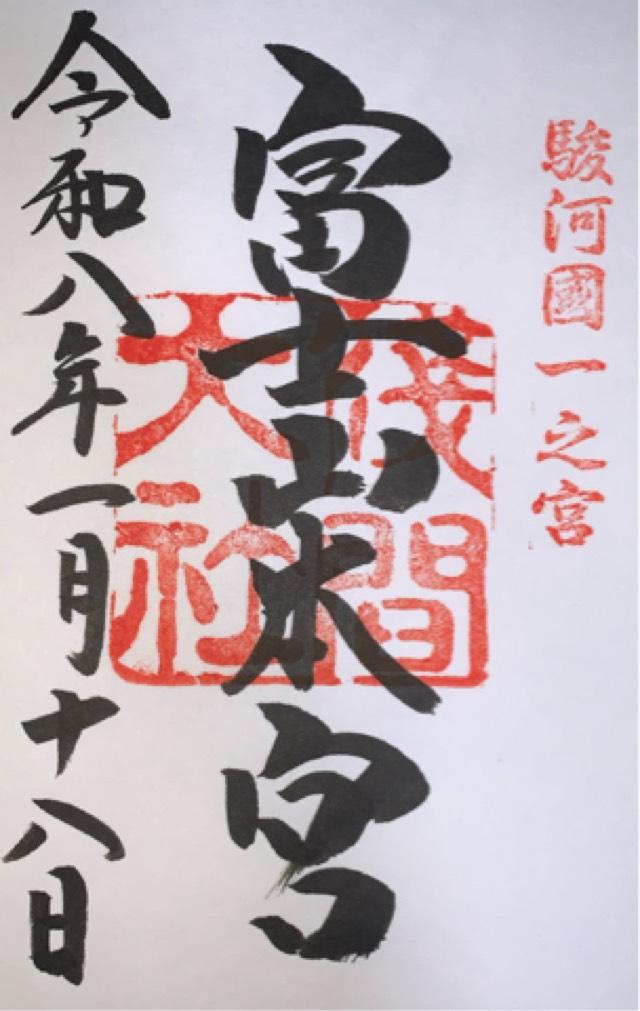 駿河國一之宮
富士山本宮
淺間大社
令和八年一月十八日